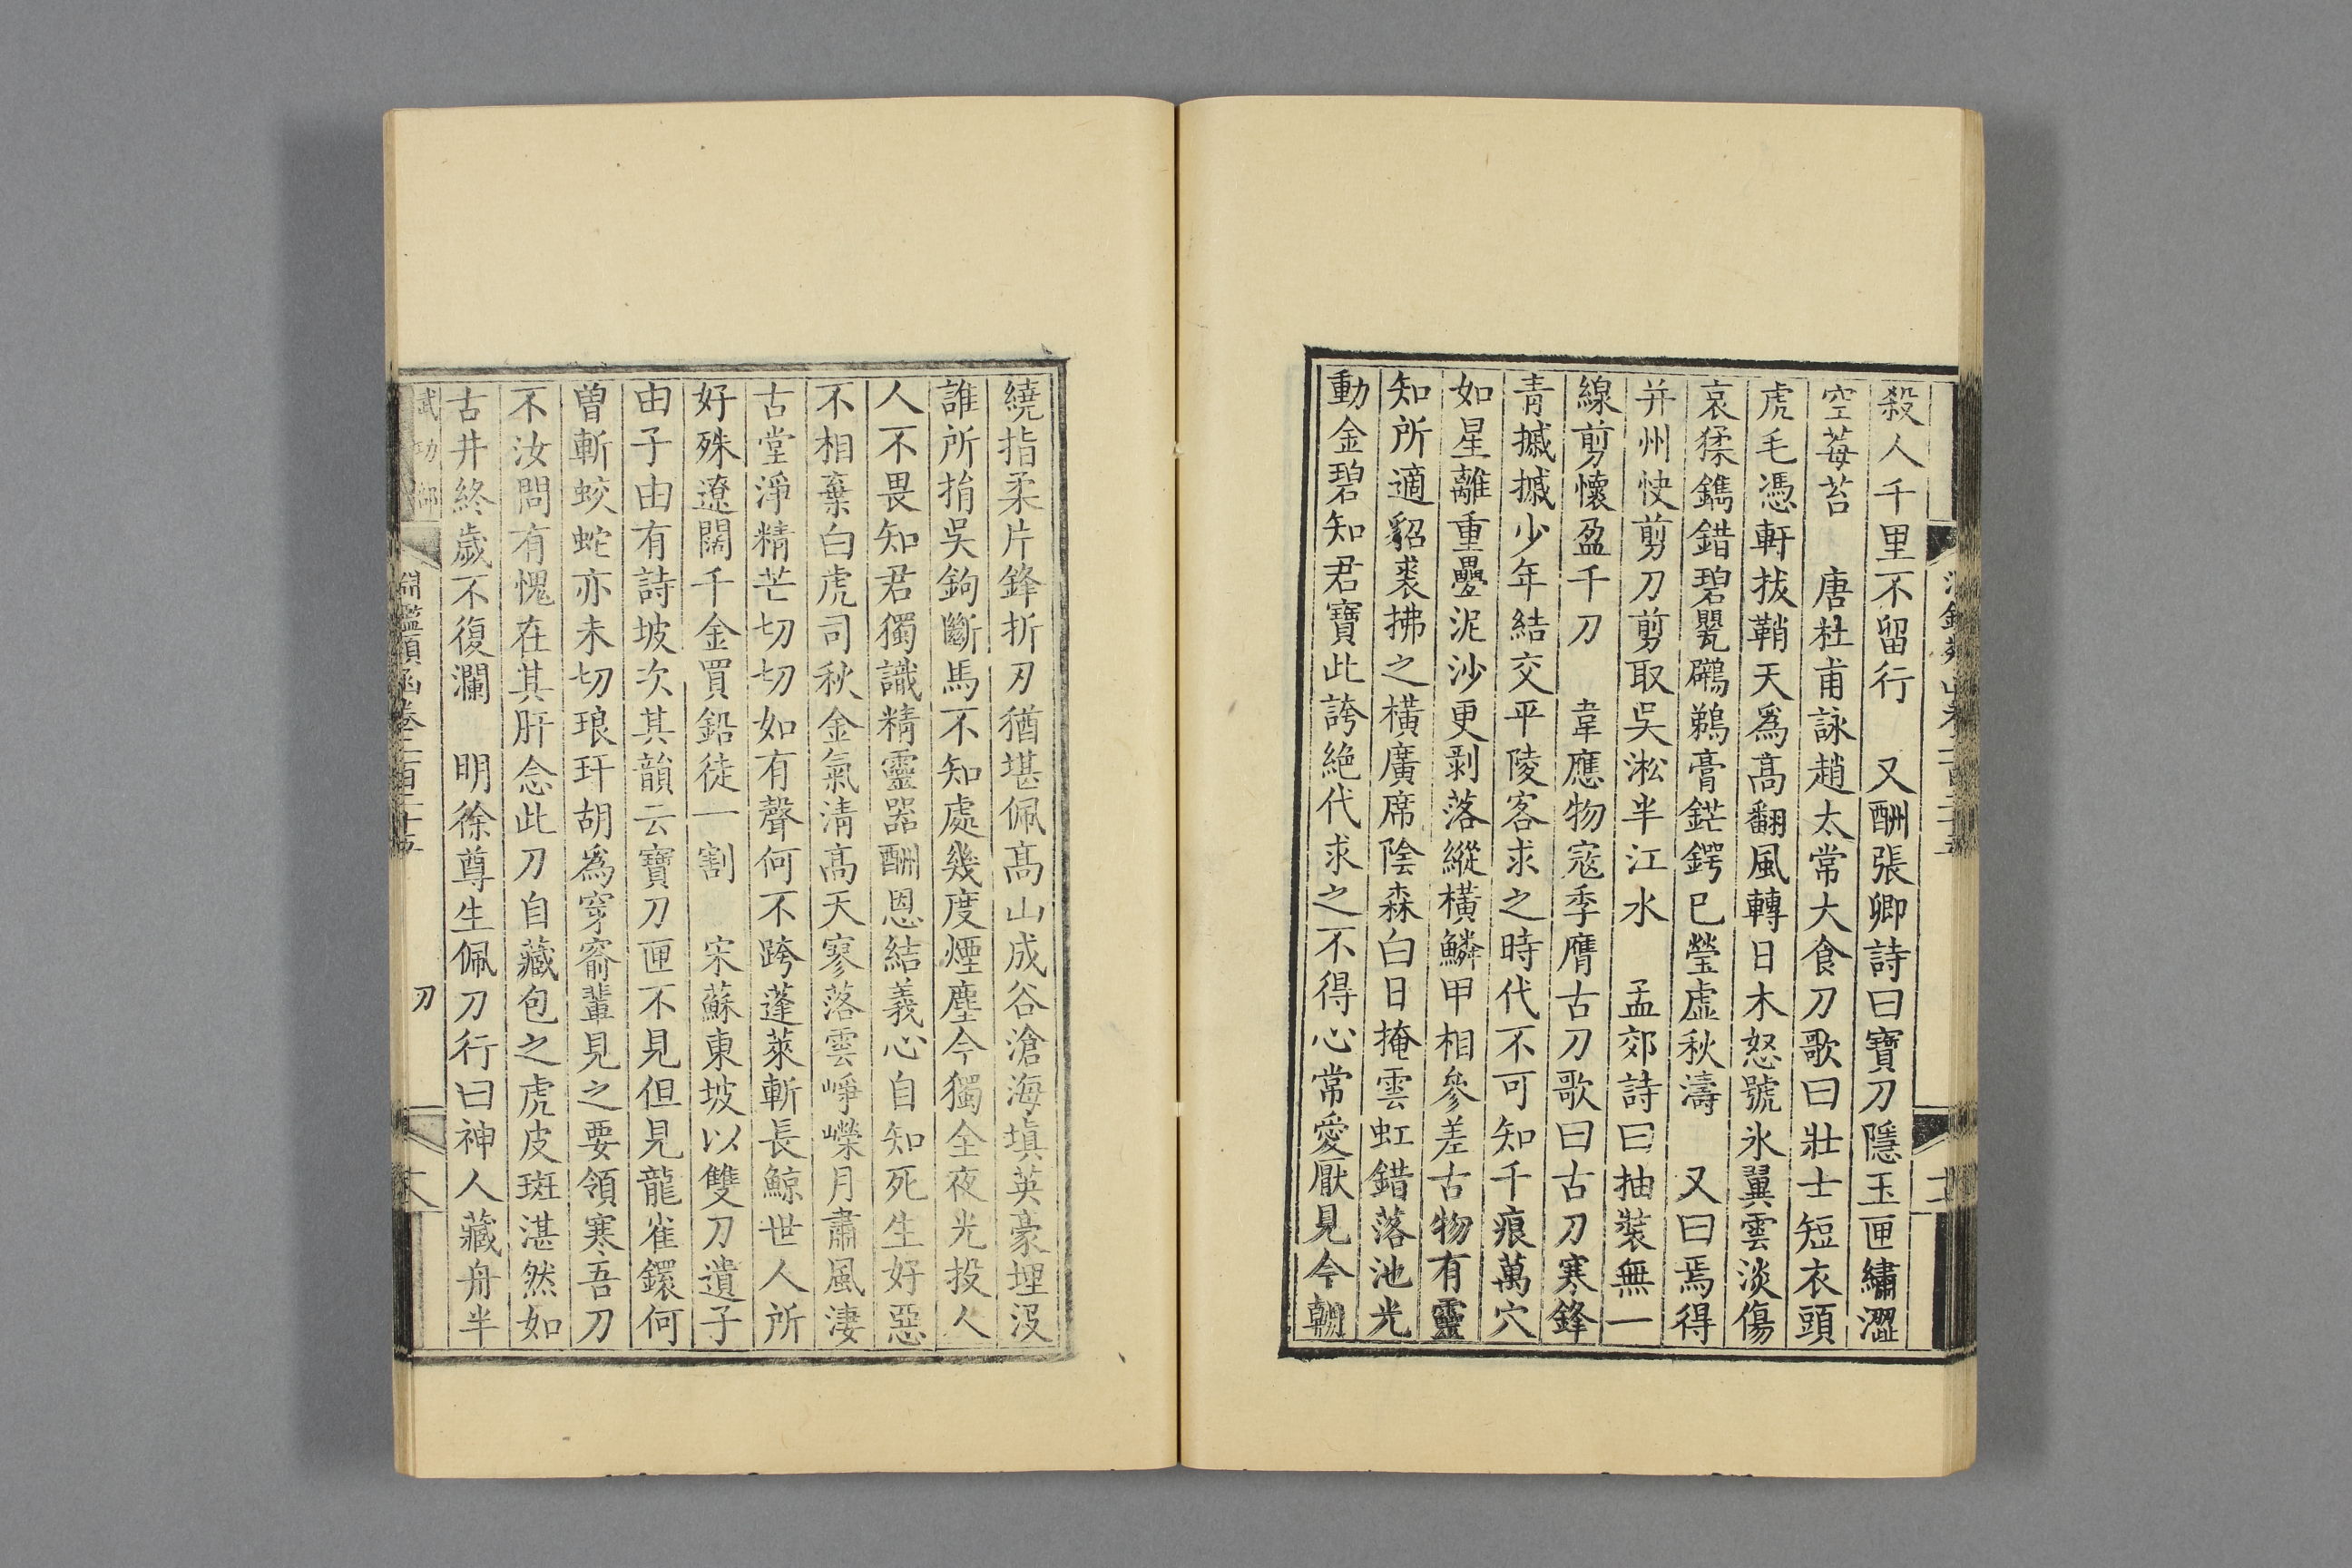 殺人千里不留行　又酬張卿詩曰寶刀隱玉匣繡澀
空莓苔　唐杜甫詠趙太常大食刀歌曰壯士短衣頭
虎毛憑軒拔鞘天爲高翻風轉日木怒號氷翼雲淡傷
哀猱鐫錯碧甖鸊鵜膏鋩鍔已瑩虛秋濤　又曰焉得
并州快剪刀剪取吳淞半江水　孟郊詩曰抽裝無一
線剪懷盈千刀　韋應物寇季膺古刀歌曰古刀寒鋒
青槭槭少年結交平陵客求之時代不可知千痕萬穴
如星離重疊泥沙更剥落縱橫鱗甲相參差古物有靈
知所適貂裘拂之橫廣席陰森白日掩雲虹錯落池光
動金碧知君寶此誇絶代求之不得心常愛厭見今朝
繞指柔片鋒折刃猶堪佩髙山成谷滄海塡英豪埋沒
誰所捐吳鉤斷馬不知處幾度煙塵今獨全夜光投人
人不畏知君獨識精靈器酬恩結義心自知死生好惡
不相棄白虎司秋金氣清髙天寥落雲崢嶸月肅風淒
古堂淨精芒切切如有聲何不跨蓬萊斬長鯨世人所
好殊遼闊千金買鉛徒一割　宋蘇東坡以雙刀遺子
由子由有詩坡次其韻云寶刀匣不見但見龍雀鐶何
曽斬蛟蛇亦未切琅玕胡爲穿窬輩見之要領寒吾刀
不汝問有愧在其肝念此刀自藏包之虎皮斑湛然如
古井終歲不復瀾　明徐尊生佩刀行曰神人藏舟半
淵鑑類函卷二百二十五　刀